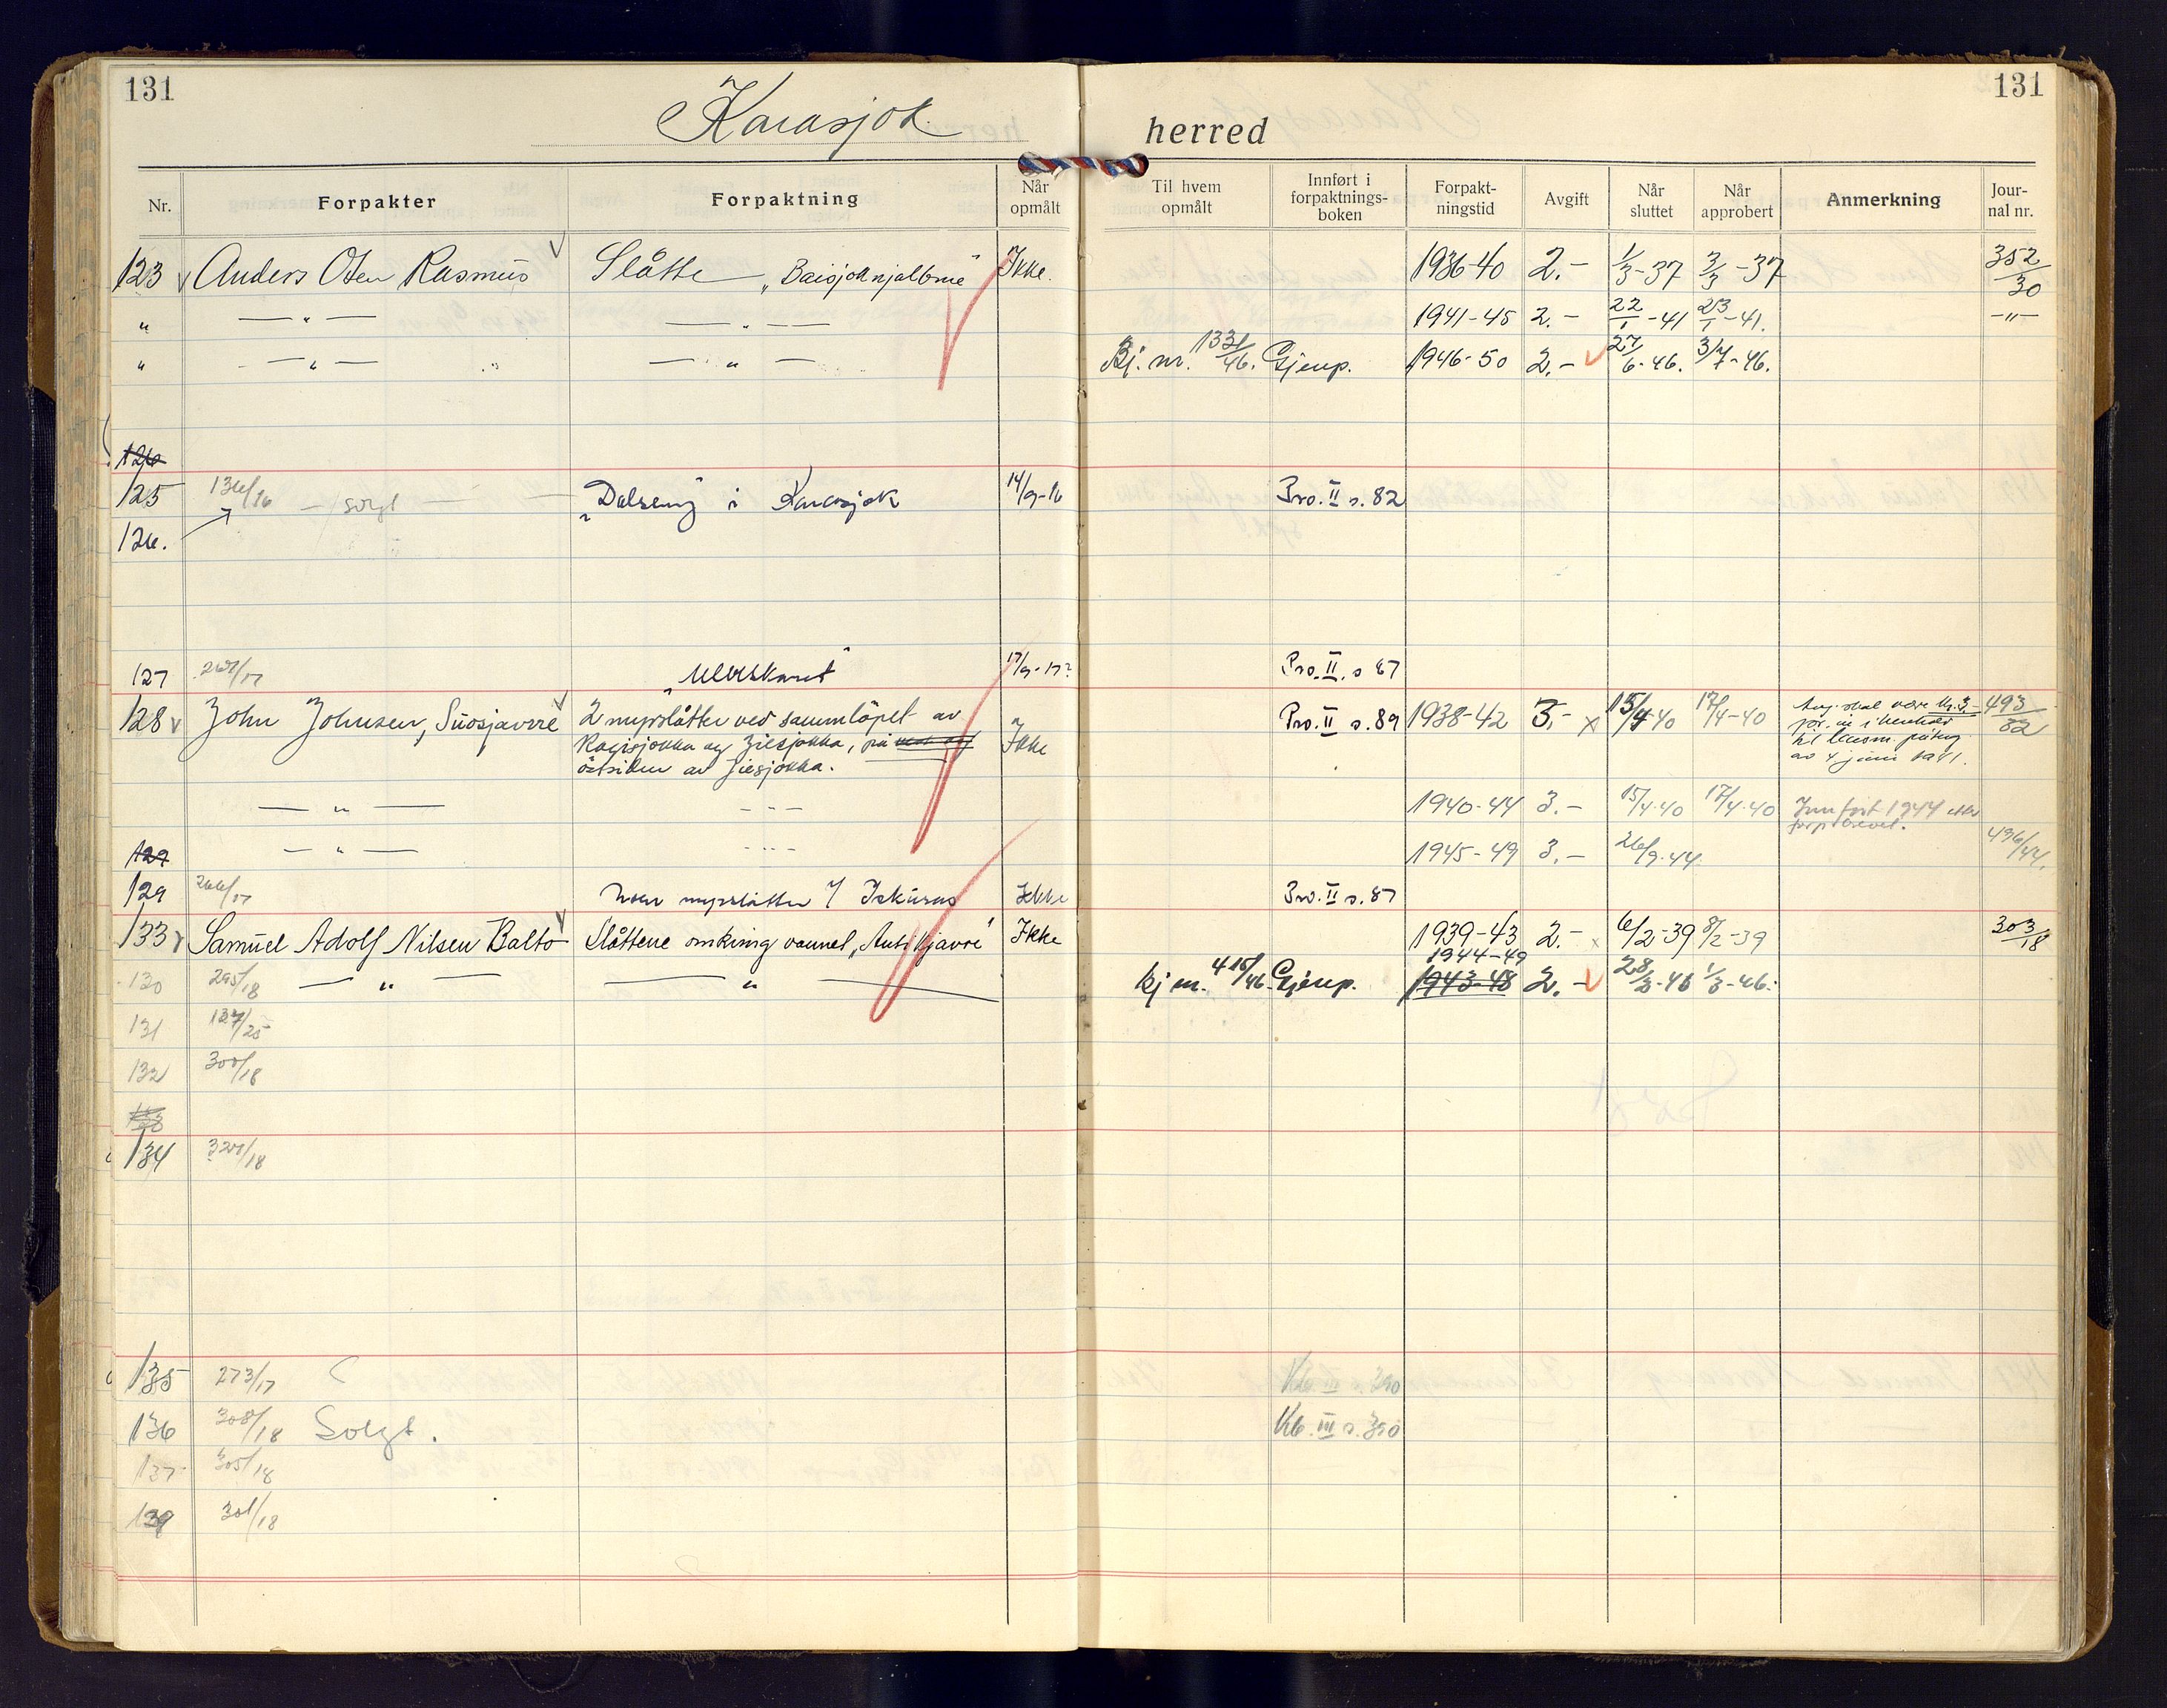 131
Karasjok herred
131
Nr. Forpakter Forpaktning Når opmålt Til hvem opmålt Innført i forpaktnings-boken Forpakt-ningstid Avgift Når sluttet Når approbert Anmerkning Jour-nal nr.
123 Anders Olsen Rasmus Slåtte „Baisjoknjalbme" Ikke. 1936-40 2.- 1/3-37 3/3-37 352/30
" — " — — " — — 1941-45 2.- 22/1-41 23/1-41. — " —
" — " — — " — Bj. nr. 1331/46. Gjenp. 1946-50 2.- 27/6-46. 3/7-46.
126
125 136/16 — solgt — „Dalseng" i Karasjok 14/9-16 Pro. II s. 82
126.
127 267/17 17/9-17? Pro. II. s 87
128 John Johnsen, Suosjavrre 2 myrslåtter ved sammløpet av Ikke Pro. II s. 89 1938-42 3.- x 15/4-40 17/4-40 Avg. skal være kr. 3,- 493/32
Ragisjokka og Jiesjokka, på
østsiden av Jiesjokka.
av 4. juni 1941.
— " — - " - 1940-44 3.- 15/4-40 17/4-40 Innført 1944 etter
forp. brevet.
129 — " — - " - 1945-49 3.- 26/9-44. 436/44.
129 266/17 Noen myrslåtter i Iskuras Ikke Pro. II s. 87
133 Samuel Adolf Nilsen Balto Slåttene omkring vannet „ Ikke 1939-43 2.- x 6/2-39 8/2-39 303/18
1944-49
130 295/18 — " — — " — Bj nr. 415/46. Gjenp. 1943-48 2.- 28/2-46 1/3-46.
131 137/25
132 300/18
133
134 320/18
135 273/17 Kb. III s. 390
136 308/18 Solgt. Kb. III s. 350
137 305/18
139 301/18